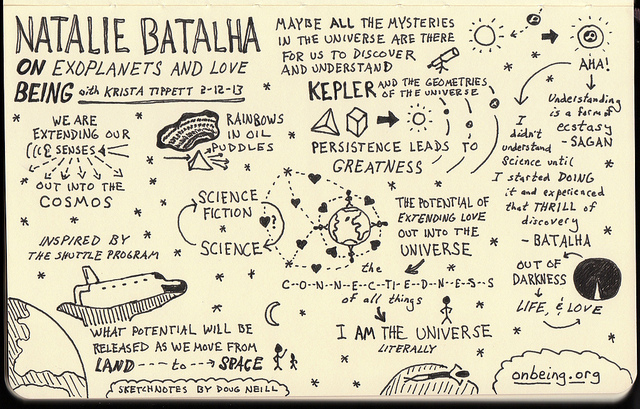 NATALIE BATALHA
ON EXOPLANETS AND LOVE
BEING with KRISTA TIPPETT 2-12-13
MAYBE ALL THE MYSTERIES
IN THE UNIVERSE ARE THERE
FOR US TO DISCOVER
AND UNDERSTAND
AHA!
Understanding
is a form of
ecstasy
- SAGAN
KEPLER AND THE GEOMETRIES
OF THE UNIVERSE
PERSISTENCE LEADS TO
GREATNESS
I
didn't
understand
Science until
I started DOING
it and experienced
that THRILL of
discovery
- BATALHA
WE ARE
EXTENDING OUR
SENSES
OUT INTO THE
COSMOS
RAINBOWS
IN OIL
PUDDLES
SCIENCE
FICTION
?
SCIENCE
THE POTENTIAL OF
EXTENDING LOVE
OUT INTO THE
UNIVERSE
the
C-O-N-N-E-C-T-E-D-N-E-S-S
of all things
I AM THE UNIVERSE
LITERALLY
OUT OF
DARKNESS
LIFE & LOVE
INSPIRED BY
THE SHUTTLE PROGRAM
WHAT POTENTIAL WILL BE
RELEASED AS WE MOVE FROM
LAND to SPACE
SKETCHNOTES BY DOUG NEILL
onbeing.org